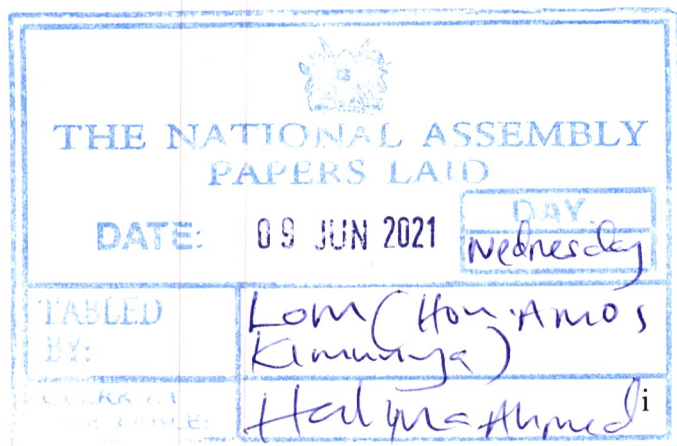 THE NATIONAL ASSEMBLY
PAPERS LAID
DATE: 09 JUN 2021
DAY.
Wednesday
TABLED
BY:
Lom (Hon. Amos
Kimunya)
CLERK AT
TABLE:
Ahmed
i